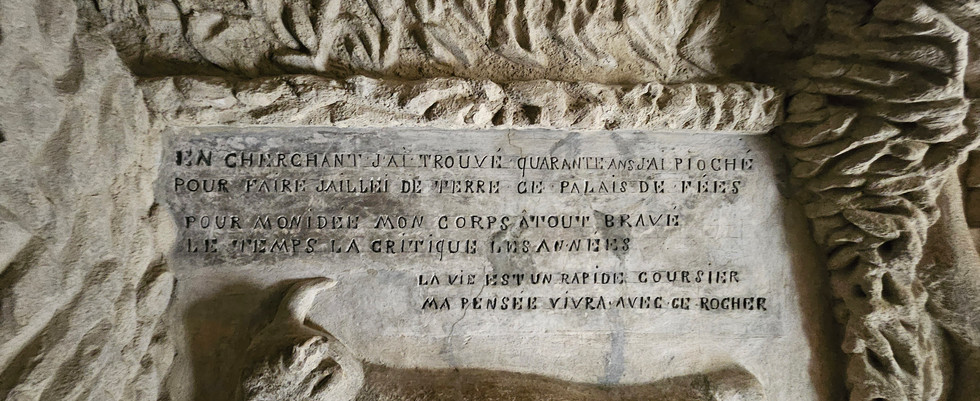 EN CHERCHANT J'AI TROUVÉ QUARANTE ANS J'AI PIOCHÉ
POUR FAIRE JAILLEI DE TERRE CE PALAIS DE FÉES
POUR MON IDEE MON CORPS À TOUT BRAVÉ
LE TEMPS LA CRITIQUE LES ANNÉES
LA VIE EST UN RAPIDE COURSIER
MA PENSÉE VIVRA AVEC CE ROCHER